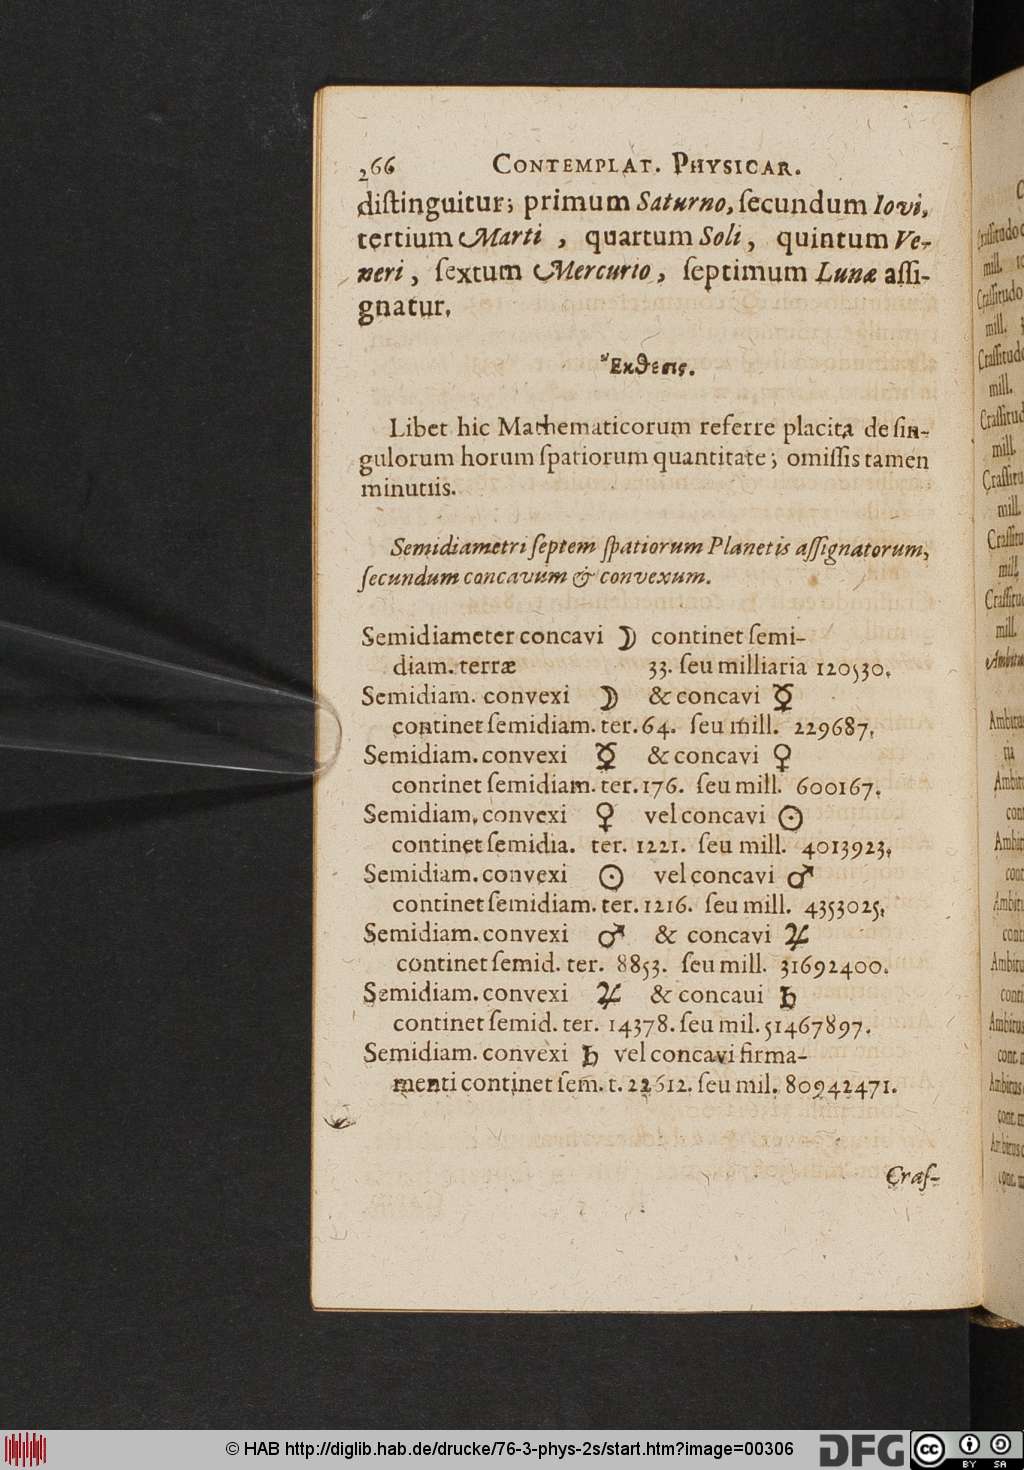 266 CONTEMPLAT. PHYSICAR.
diſtinguitur; primum Saturno, ſecundum Iovi,
tertium Marti , quartum Soli, quintum Ve-
neri, ſextum Mercurio, ſeptimum Lunæ aſſi-
gnatur.
Ἔκθεσις.
Libet hic Mathematicorum referre placita de ſin-
gulorum horum ſpatiorum quantitate; omiſſis tamen
minutiis.
Semidiametri ſeptem ſpatiorum Planetis aſſignatorum,
ſecundum concavum & convexum.
Semidiameter concavi ☽ continet ſemi-
diam. terræ 33. ſeu milliaria 120530.
Semidiam. convexi ☽ & concavi ☿
continet ſemidiam. ter. 64. ſeu mill. 229687.
Semidiam. convexi ☿ & concavi ♀
continet ſemidiam. ter. 176. ſeu mill. 600167.
Semidiam. convexi ♀ vel concavi ☉
continet ſemidia. ter. 1221. ſeu mill. 4013923.
Semidiam. convexi ☉ vel concavi ♂
continet ſemidiam. ter. 1216. ſeu mill. 4353025.
Semidiam. convexi ♂ & concavi ♃
continet ſemid. ter. 8853. ſeu mill. 31692400.
Semidiam. convexi ♃ & concaui ♄
continet ſemid. ter. 14378. ſeu mil. 51467897.
Semidiam. convexi ♄ vel concavi firma-
menti continet ſem. t. 22612. ſeu mil. 80942471.
Craſ-
© HAB http://diglib.hab.de/drucke/76-3-phys-2s/start.htm?image=00306
DFG
cc BY SA